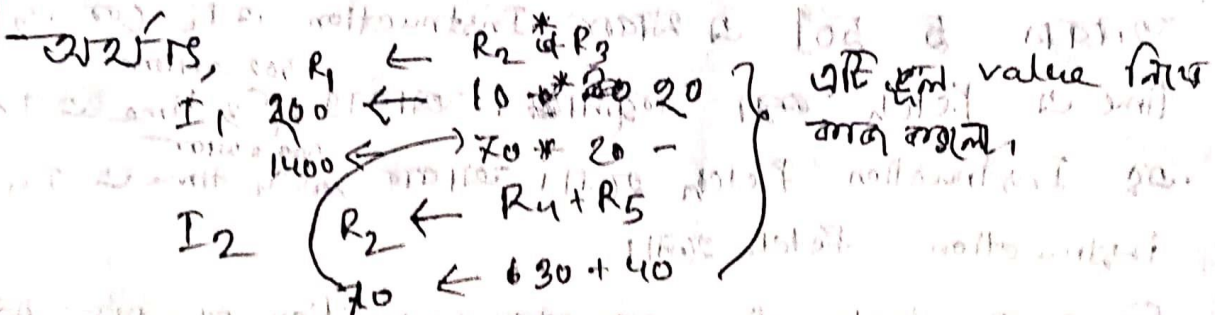 অর্থাৎ, R1 ← R2 * R3
I1 200 ← 10 * 20
1400 ← 70 * 20 -
I2 R2 ← R4 + R5
70 ← 30 + 40
এটি ভুল value নিয়ে
কাজ করলো।